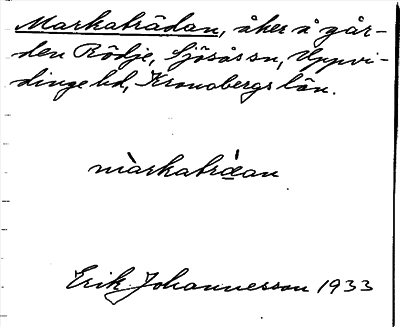 Markabrädan, åker å går-
den Rödje, Sjösås sn, Uppvi-
dinge hd, Kronobergs län.
màrkabrá̈an
Erik Johannesson 1933